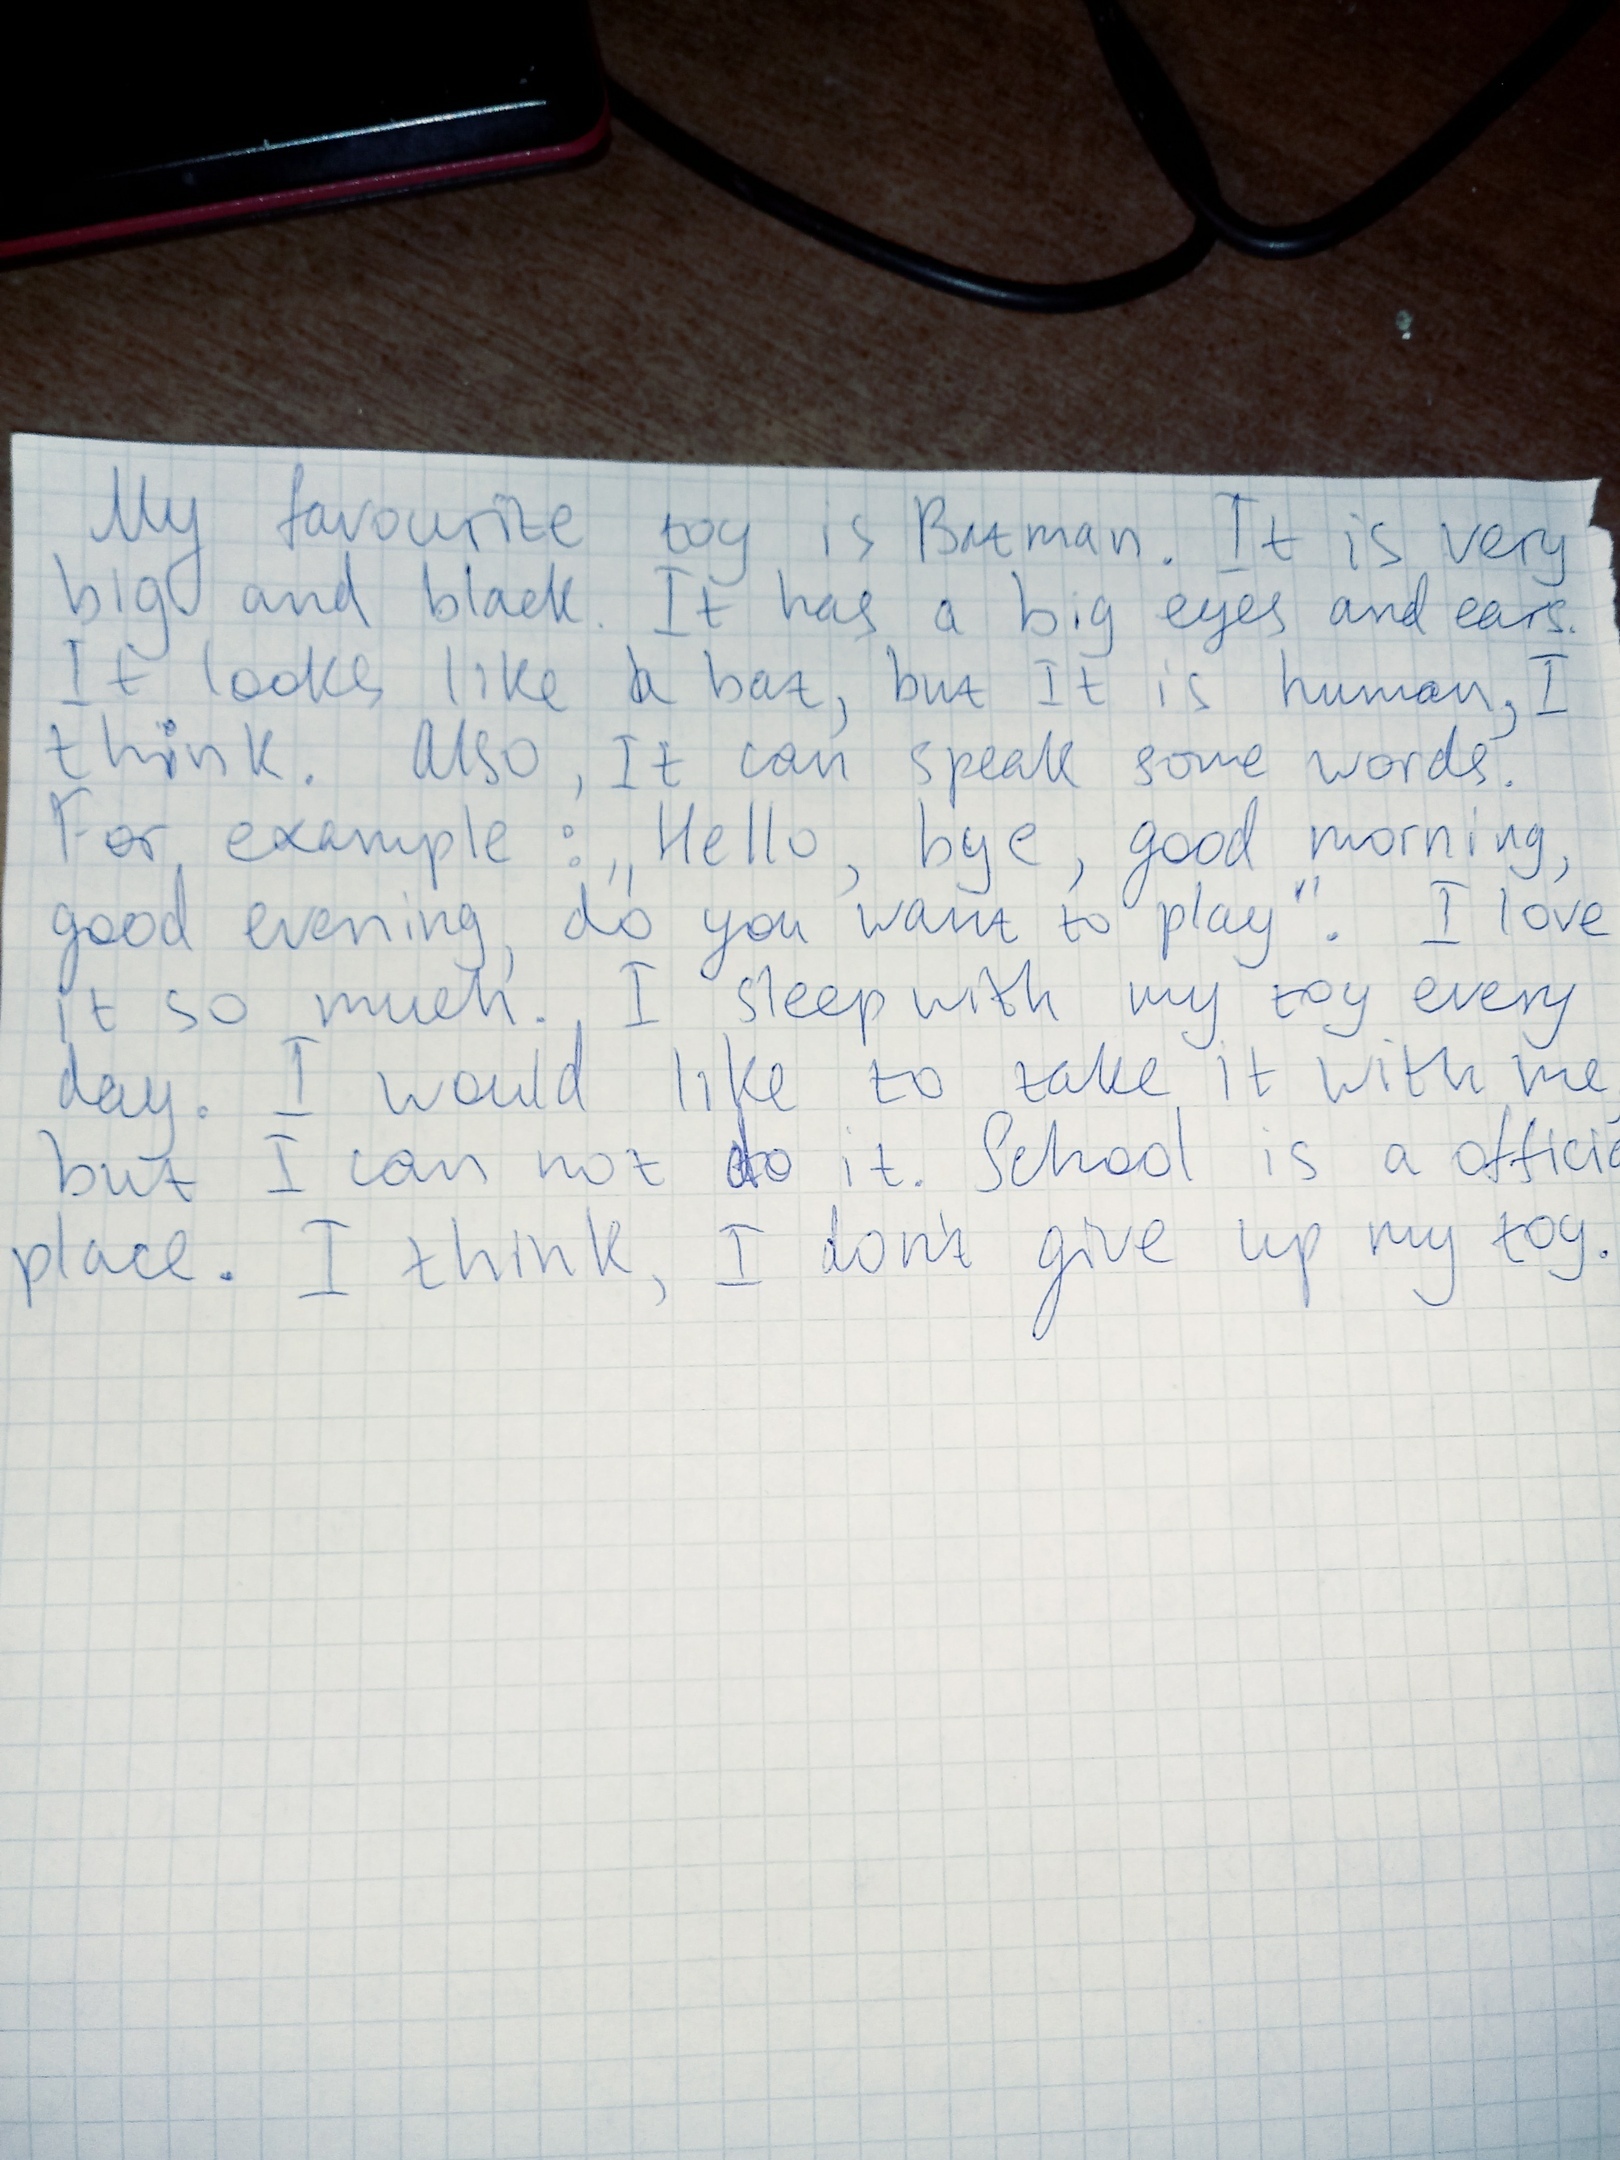 My favourite toy is Batman. It is very
big and black. It has a big eyes and ears.
It looks like a bat, but It is human, I
think. Also, It can speak some words.
For example: „Hello, bye, good morning,
good evening, do you want to play". I love
it so much. I sleep with my toy every
day. I would like to take it with me
but I can not do it. School is a officia
place. I think, I don't give up my toy.